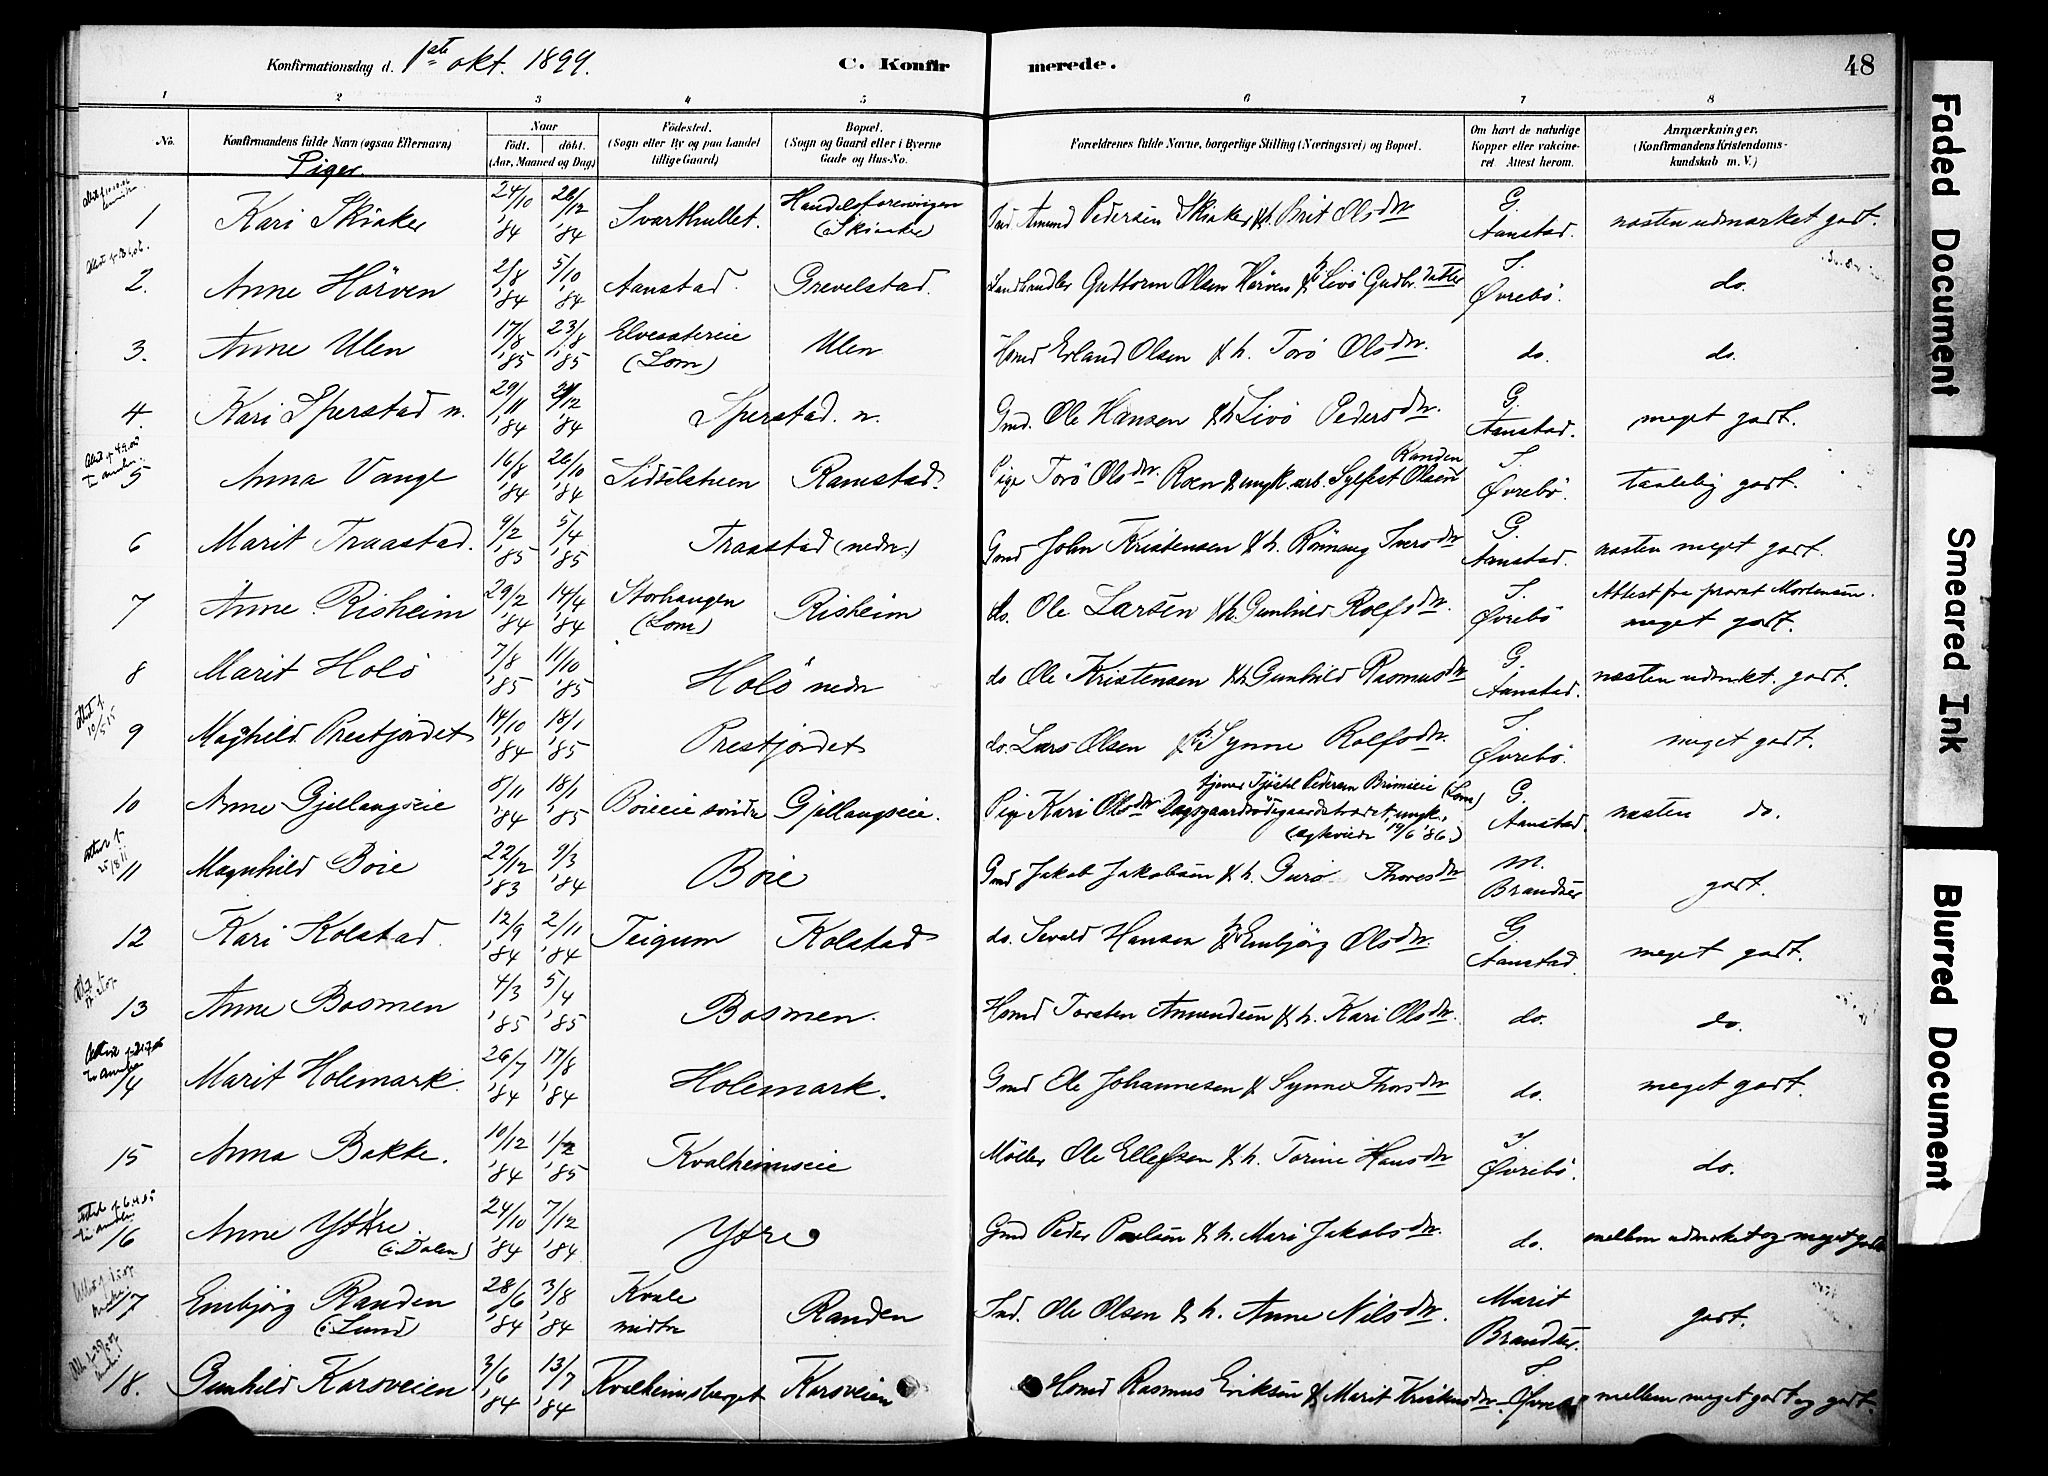 Konfirmationsdag d. 1ste okt. 1899. C. Konfirmerede. 48
1 2 3 4 5 6 7 8
No. Konfirmandens fulde Navn (ogsaa Efternavn) Naar Födt. döbt. (Aar, Maaned og Dag) Födested. (Sogn eller By og paa Landet tillige Gaard) Bopæl. (Sogn og Gaard eller i Byerne Gade og Hus-No. Forældrenes fulde Navne, borgerlige Stilling (Næringsvei) og Bopæl. Om havt de naturlige Kopper eller vakcineret. Attest herom. Anmærkninger. (Konfirmandens Kristendomskundskab m. V.)
Piger.
1 Kari Skiaker 24/10 '84 26/12 '84 Svarthullet Handelsforeningen (Skiaker) Ind. Amund Pedersen Skiaker & h. Brit Olsdtr G. Aanstad. næsten udmærket godt.
2. Anne Hörven 2/8 '84 5/10 '84 Aanstad. Grevelstad. Landhandler Guttorm Olsen Hörven & h. Livö Gudbr.datter I. Øvrebö. do.
3. Anne Ulen 17/8 '85 23/8 '85 Elvesætereie (Lom) Ulen Hsmd Erland Olsen & h. Torö Olsdtr. do. do.
4. Kari Sperstad n. 29/11 '84 /12 '84 Sperstad n. Gmd. Ole Hansen & h. Livö Pedersdtr. G. Aanstad. meget godt.
5 Anna Vange 16/8 '84 26/10 '84 Sidselstuen Ramstad. Pige Torö Olsdtr. Roen & ungk. arb. Sylfest Olsen Randen I. Øvrebö. taalelig godt.
6 Marit Traastad. 9/2 '85 5/4 '85 Traastad (nedr.) Gmd John Kristensen & h. Rönnaug Iversdtr G. Aanstad. næsten meget godt.
7 Anne Risheim 29/2 '84 14/4 '84 Storhaugen (Lom) Risheim do. Ole Larsen & h. Gunhild Rolfsdtr. I. Øvrebö Attest fra provst Mortensen. meget godt.
8 Marit Holö 7/8 '85 11/10 '85 Holö nedr do Ole Kristensen & h Gunhild Rasmusdtr G. Aanstad. næsten udmrket. godt.
9 Maghild Prestjordet 14/10 '84 18/1 '85 Prestjordet do. Lars Olsen & h. Synne Rolfsdtr. I. Øvrebö. meget godt.
10 Anne Gjellaugseie 8/11 '84 18/1 '85 Böieeie söndre Gjellaugseie. Pige Kari Olsdtr. ungk. tjener Tjöstel Pedersen Brimieie (Lom) (ægteviede 19/6 '86.) G. Aanstad. næsten do.
11 Magnhild Böie 22/12 '83 9/3 '84 Böie Gmd Jakob Jakobsen & h. Gurö Thoresdtr M. Brandsær godt.
12 Kari Kolstad. 12/9 '84 2/11 '84 Teigum Kolstad do. Sevald Hansen & h Embjörg Olsdtr. G Aanstad. meget godt.
13 Anne Bosmen 4/3 '85 5/4 '85 Bosmen. Hsmd Torsten Amundsen & h. Kari Olsdtr. do. do.
14 Marit Holemark. 26/7 '84 17/8 '84 Holemark. Gmd Ole Johannesen & Synne Thorsdtr do. meget godt.
15 Anna Bakke. 10/12 '84 1/2 '85 Kvalheimseie Möller Ole Ellefsen & h. Torine Hansdtr I. Øvrebö. do.
16 Anne Yttre. (i Dalen) 24/10 '84 7/12 '84 Ytre Gmd Peder Paulsen & h. Mari Jakobsdtr. do. mellem udmrket og meget godt
17 Embjörg Randen (i Lund) 28/6 '84 3/8 '84 Kvale midtr Randen Ind. Ole Olsen & h. Anne Nilsdtr. Marit Brandsær. godt.
18. Gunhild Korsveien 3/6 '84 13/7 '84 Kvalheimsberget Korsveien Hsmd Rasmus Eriksen & Marit Kristensdtr. I. Øvrebö mellem meget godt og godt.
Faded Document
Smeared Ink
Blurred Document